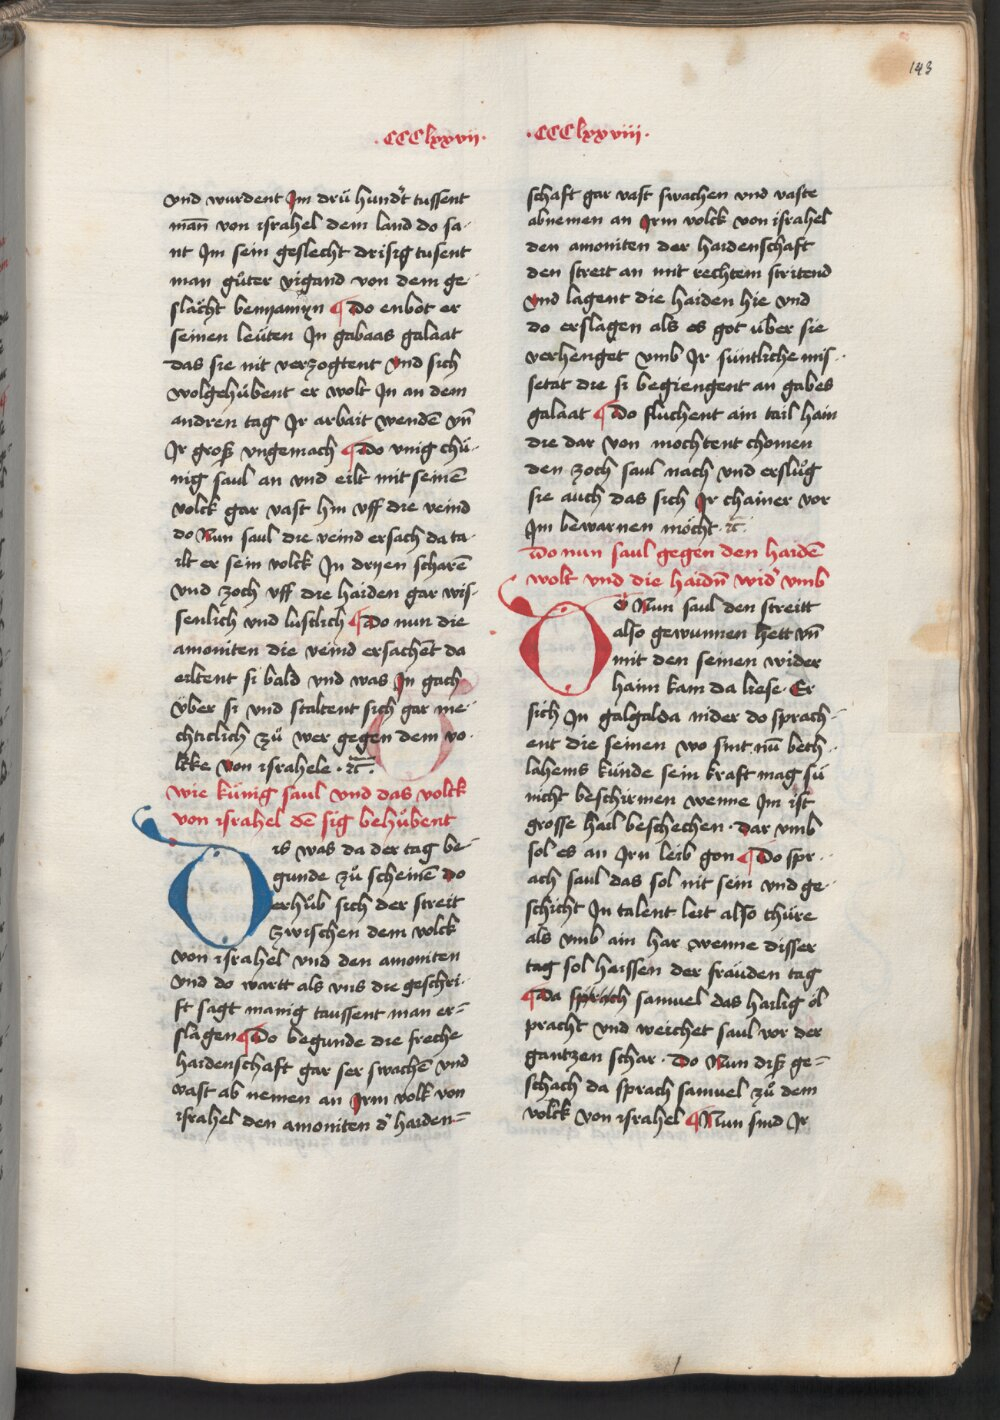 143
·CCClxxvii·
und wurdent Im drü hundt tussent
man̄ von israhel dem land do sa-
nt Im sein geslecht drisig tusent
man gůter vigand von dem ge-
slächt benyamyn ¶ Do enbot er
seinen leüten In gabaas galaat
das sie nit verzogtent Vnd sich
wolgehübent er wolt In an dem
andren tag Ir arbait wendē vn̄
Ir groß vngemach ¶ Do vnig chü-
nig saul an vnd eilt mit seinē
volck gar vast hin vff die veind
do Nun saul die veind ersach da ta-
ilt er sein volck In dryen scharē
vnd zoch vff die haiden gar wis-
senlich vnd lustlich ¶ Do nun die
amoniten die veind ersachēt da
eiltent si bald vnd was In gach
über si vnd staltent sich gar me-
chticlich zů wer gegen dem vo-
lkke Von israhele · rc̄ ·
wie künig saul vnd das volck
von israhel dē sig behůbent
Dis was da der tag be-
gunde zů scheinē do
erhůb sich der streit
zwischen dem volck
von israhel vnd den amoniten
vnd do wartt als vns die geschri-
ft sagt manig taussent man er=
slagen ¶ Do begunde die freche
haidenschaft gar ser swachē vnd
vast ab nemen an Irm volk von
israhel den amoniten d' haiden=
·CCClxxviii·
schaft gar vast swachen vnd vaste
abnemen an Irm volck von israhel
den amoniten der haidenschaft
den streit an mit rechtem stritend
Vnd lagent die haiden hie vnd
do erslagen als es got über sie
verhenget vmb Ir süntliche mis-
setat die si begiengent an gabes
galaat ¶ Do fluchent ain tail hain
die dar von mochtent chomen
den zoch saul nach vnd erslůg
sie auch das sich Ir chainer vor
Im bewarnen möcht · rc̄ ·
Wo nun saul gegen den haidē
wolt vnd die haidn̄ wid' vmb
Do Nun saul den streitt
also gewunnen hett vn̄
mit den seinen wider
haim kam da liese Er
sich In galgalda nider do sprach-
ent die seinen wo sint nū beth-
lahems künde sein kraft mag sü
nicht beschirmen wenne Im ist
grosse hail beschechen · Dar vmb
sol es an Irn leib gon ¶ Do spr-
ach saul das sol nit sein vnd ge-
schicht In talent leit also thüre
als vmb ain har wenne disser
tag sol haissen der fräuden tag
¶ Da sprach samuel das hailig öl
pracht vnd weichet saul vor der
gantzen schar · Do Nun diß ge=
schach da sprach samuel zů dem
volck von israhel ¶ Nun sind Ir